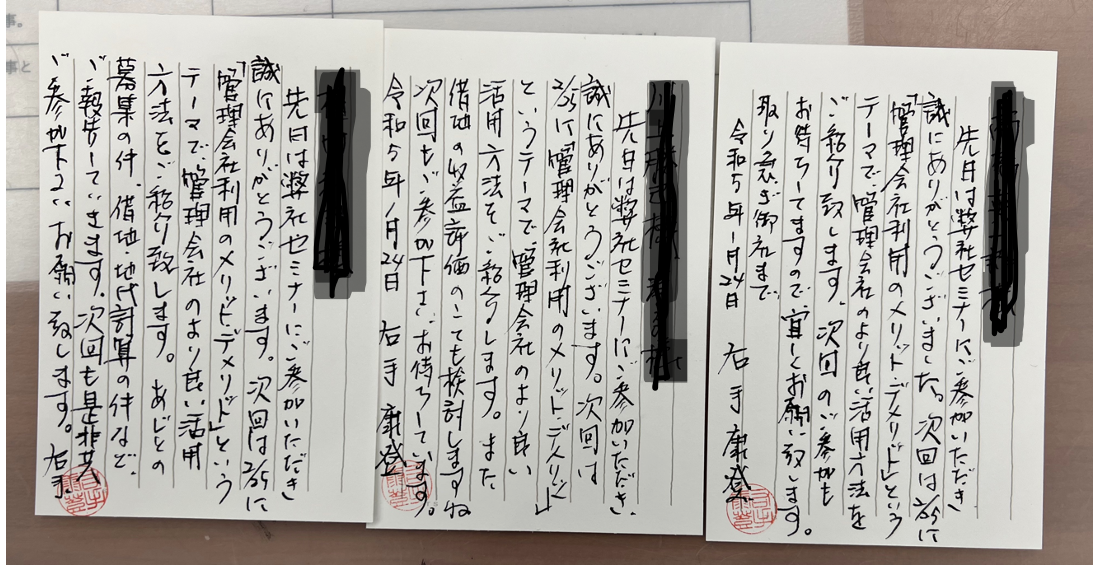 先日は弊社セミナーにご参加いただき
誠にありがとうございました。次回は2/25に
「管理会社利用のメリットデメリット」という
テーマで管理会社のより良い活用方法を
ご紹介致します。次回のご参加も
お待ちしてますので、宜しくお願い致します。
取り急ぎ御社まで
令和5年1月24日 石手康登
先日は弊社セミナーにご参加いただき、
誠にありがとうございます。次回は
2/25に「管理会社利用のメリット・デメリット」
というテーマで、管理会社のより良い
活用方法をご紹介します。また
借地の収益評価のこても検討しますね
次回もご参加下さい、お待ちしています。
令和5年1月24日 石手康登
先日は弊社セミナーにご参加いただき
誠にありがとうございます。次回は2/25に
「管理会社利用のメリットデメリット」という
テーマで、管理会社のより良い活用
方法をご紹介致します。あじとの
募集の件、借地・地代計算の件など、
ご報告しています。次回も是非共
ご参加下さい、お願い致します。石手
事。
事と